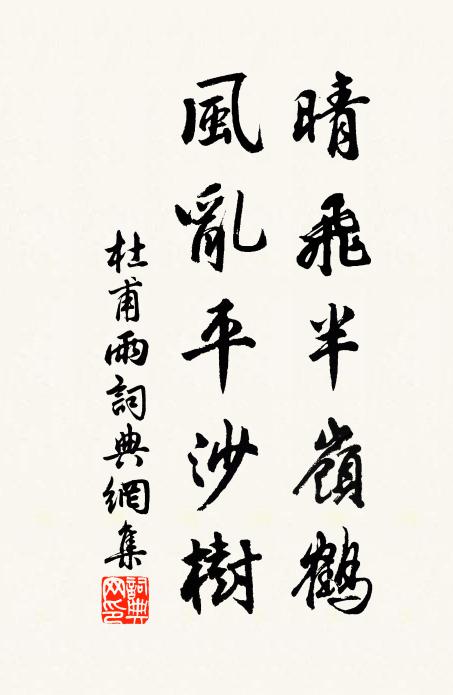 晴飛半嶺鶴
風亂平沙樹
杜甫雨詞典網集
詞典
网印